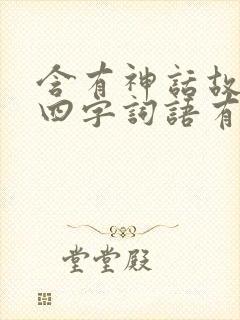 含有神話故
四字詞語有
堂堂殿